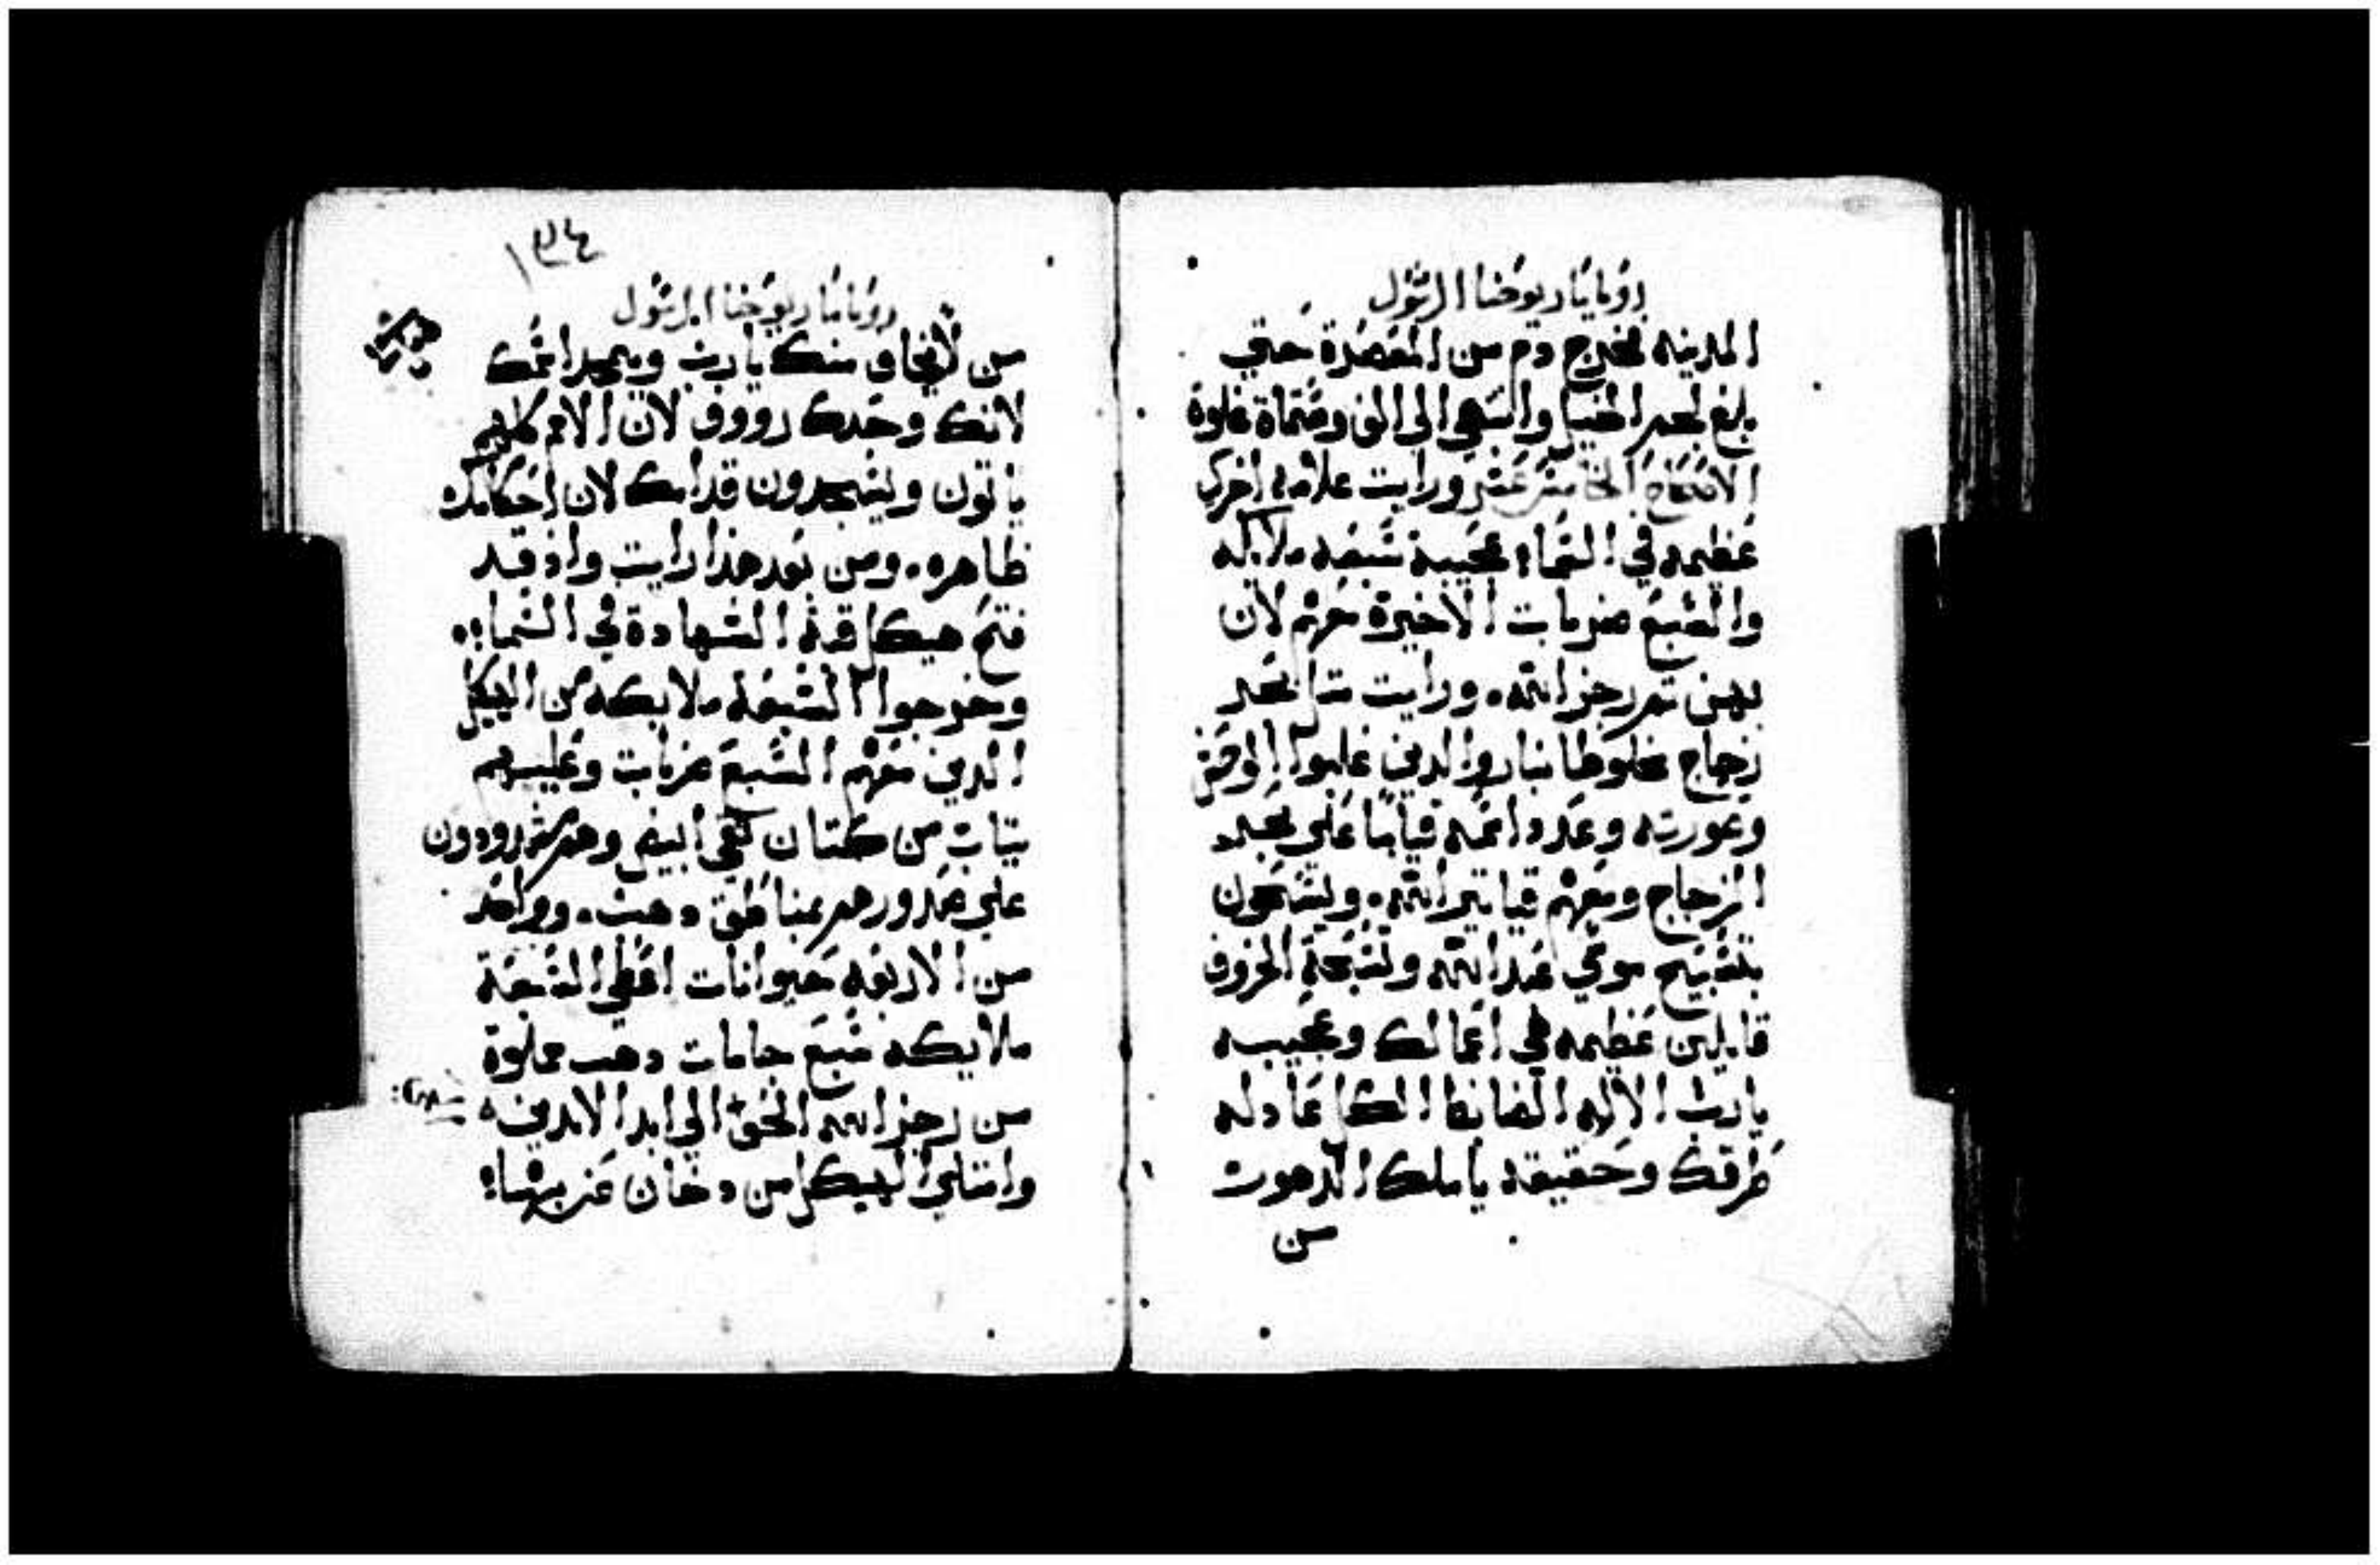 رويا ماريوحنا الرسول
المدينه فخرج دم من المعصرة حتي
بلغ لجم الخيل وانتهي الي الف وستماة غلوة
الاصحاح الخامس عشر ورايت علامه اخري
عظيمه في السماء عجيبة سبعه ملايكه
والسبع ضربات الاخيرة معهم لان
بهن تم رجز الله. ورايت مثل بحر
زجاج مخلوطا بنار والدين غلبوا الوحش
وصورته وعدد اسمه قياما علي بحر
الزجاج ومعهم قياتير الله. ويسبحون
بتسبيح موسي عبد الله وتسبحة الخروف
قايلين عظيمه هي اعمالك وعجيبه
يارب الاله الضابط الكل عادله
طرقك وحقيقه ياملك الدهور
من
١٣٤
رويا ماريوحنا الرسول
من لايخاف منك يارب ويمجد اسمك
لانك وحدك رووف لان الامم كلهم
ياتون ويسجدون قدامك لان احكامك
ظاهره. ومن بعد هذا رايت واذ قد
فتح هيكل قبة الشهادة في السماء.
وخرجوا السبعة ملايكه من الهيكل
الدين معهم السبع ضربات وعليهم
تياب من كتان نقي ابيض وهم مشدودون
علي صدورهم بمناطق دهب. وواحد
من الاربعه حيوانات اعطي السبعة
ملايكه سبع جامات دهب مملوة
من رجز الله الحي الي ابد الابدين
وامتلي الهيكل من دخان